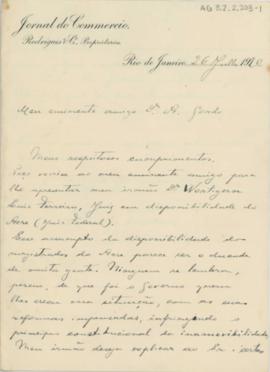 AG 8.2.2.203-1
Jornal do Commercio.
Rodrigues & C., Proprietarios.
Rio de Janeiro, 26 Julho 1910
Meu eminente amigo Dr. A. Gordo
Meus respeitosos cumprimentos.
Faço visita ao meu eminente amigo para
lhe apresentar meu irmão Dr.
Luiz Ferreira, Juiz em disponibilidade do
Acre (Juiz Federal).
Esse assumpto da disponibilidade dos
magistrados do Acre parece ser o
de muita gente. Ninguem se lembra,
porem, de que foi o Governo quem
lhes creou essa situação, com as suas
reformas, infringindo o
principio constitucional da inamovibilidade.
Meu irmão deseja explicar ao Sr.